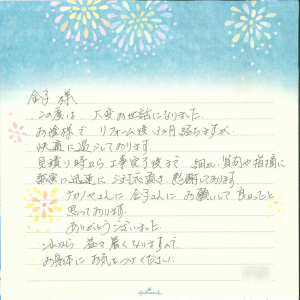 金子 様
この度は 大変お世話になりました。
お陰様で リフォーム後 3ヶ月経ちますが、
快適に過ごしております。
見積り時から工事完了後まで 細かい質問や指摘に
誠実に迅速に 対応頂き 感謝しております。
さんに 金子さんに お願いして 良かったと
思っております。
ありがとうございました。
これから 益々暑くなりますので
お身体に お気をつけください。
Hallmark